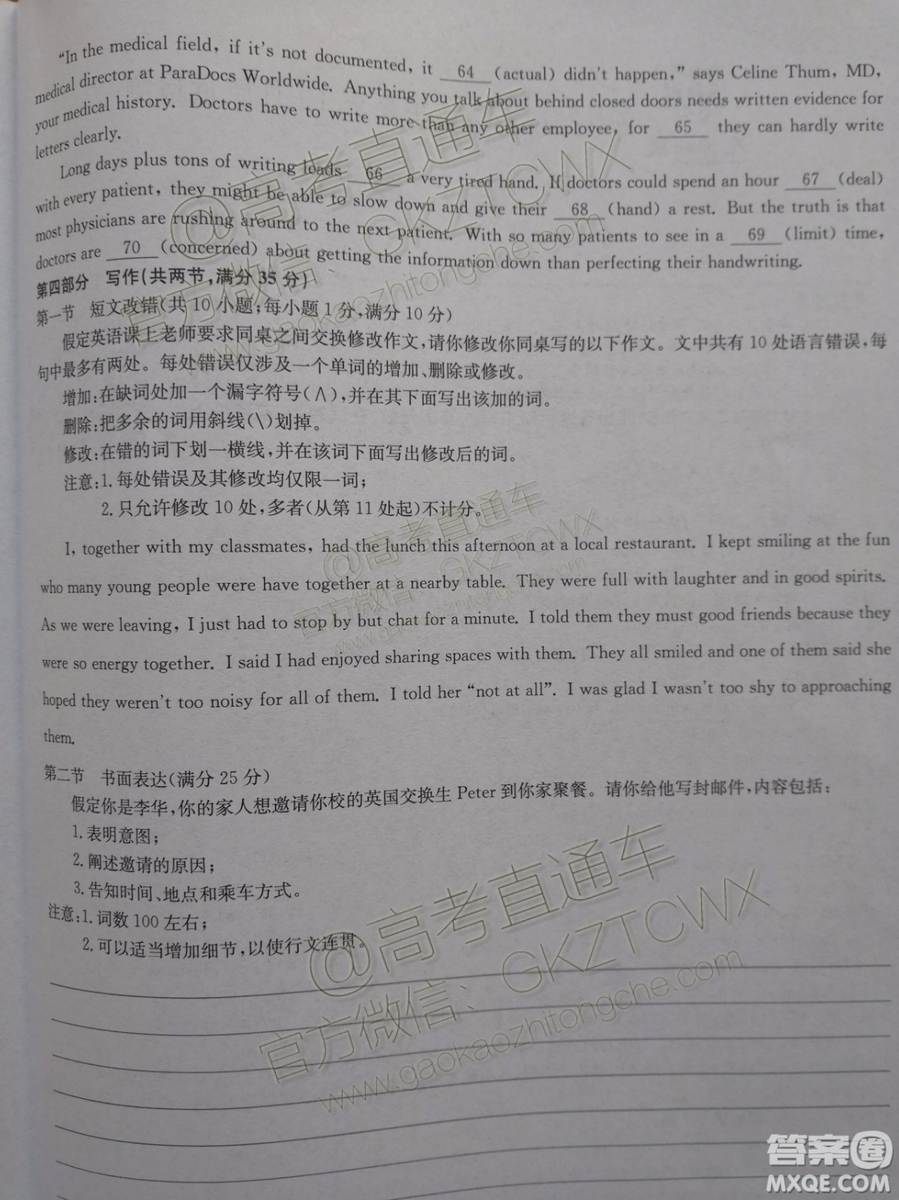 “In the medical field, if it's not documented, it 64 (actual) didn't happen,” says Celine Thum, MD,
medical director at ParaDocs Worldwide. Anything you talk about behind closed doors needs written evidence for
your medical history. Doctors have to write more than any other employee, for 65 they can hardly write
letters clearly.
Long days plus tons of writing leads 66 a very tired hand. If doctors could spend an hour 67 (deal)
with every patient, they might be able to slow down and give their 68 (hand) a rest. But the truth is that
most physicians are rushing around to the next patient. With so many patients to see in a 69 (limit) time,
doctors are 70 (concerned) about getting the information down than perfecting their handwriting.
第四部分 写作(共两节,满分35分)
第一节 短文改错(共10小题;每小题1分,满分10分)
假定英语课上老师要求同桌之间交换修改作文,请你修改你同桌写的以下作文。文中共有10处语言错误,每
句中最多有两处。每处错误仅涉及一个单词的增加、删除或修改。
增加:在缺词处加一个漏字符号(∧),并在其下面写出该加的词。
删除:把多余的词用斜线(\)划掉。
修改:在错的词下划一横线,并在该词下面写出修改后的词。
注意:1. 每处错误及其修改均仅限一词;
2. 只允许修改10处,多者(从第11处起)不计分。
I, together with my classmates, had the lunch this afternoon at a local restaurant. I kept smiling at the fun
who many young people were have together at a nearby table. They were full with laughter and in good spirits.
As we were leaving, I just had to stop by but chat for a minute. I told them they must good friends because they
were so energy together. I said I had enjoyed sharing spaces with them. They all smiled and one of them said she
hoped they weren't too noisy for all of them. I told her “not at all”. I was glad I wasn't too shy to approaching
them.
第二节 书面表达(满分25分)
假定你是李华,你的家人想邀请你校的英国交换生Peter到你家聚餐。请你给他写封邮件,内容包括:
1. 表明意图;
2. 阐述邀请的原因;
3. 告知时间、地点和乘车方式。
注意:1. 词数100左右;
2. 可以适当增加细节,以使行文连贯。
@高考直通车
官方微信:GKZTCWX
www.gaokaozhitongche.com
@高考直通车
官方微信:GKZTCWX
www.gaokaozhitongche.com
@高考直通车
官方微信:GKZTCWX
www.gaokaozhitongche.com
答案圈
MXQE.COM